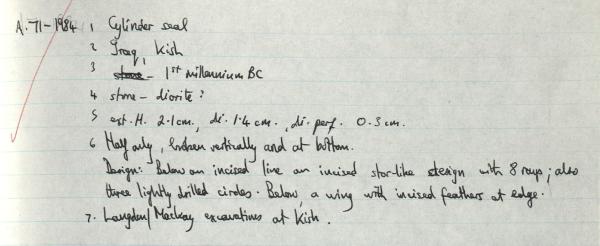 A.71-1984 1 Cylinder seal
2 Iraq, Kish
3 stone - 1st millennium BC
4 stone - diorite?
5 est. H. 2.1cm., di. 1.4 cm., di. perf. 0.3 cm.
6 Half only, broken vertically and at bottom.
Design: Below an incised line an incised star-like design with 8 rays; also
three lightly drilled circles. Below, a wing with incised feathers at edge.
7. Langdon/Mackay excavations at Kish.